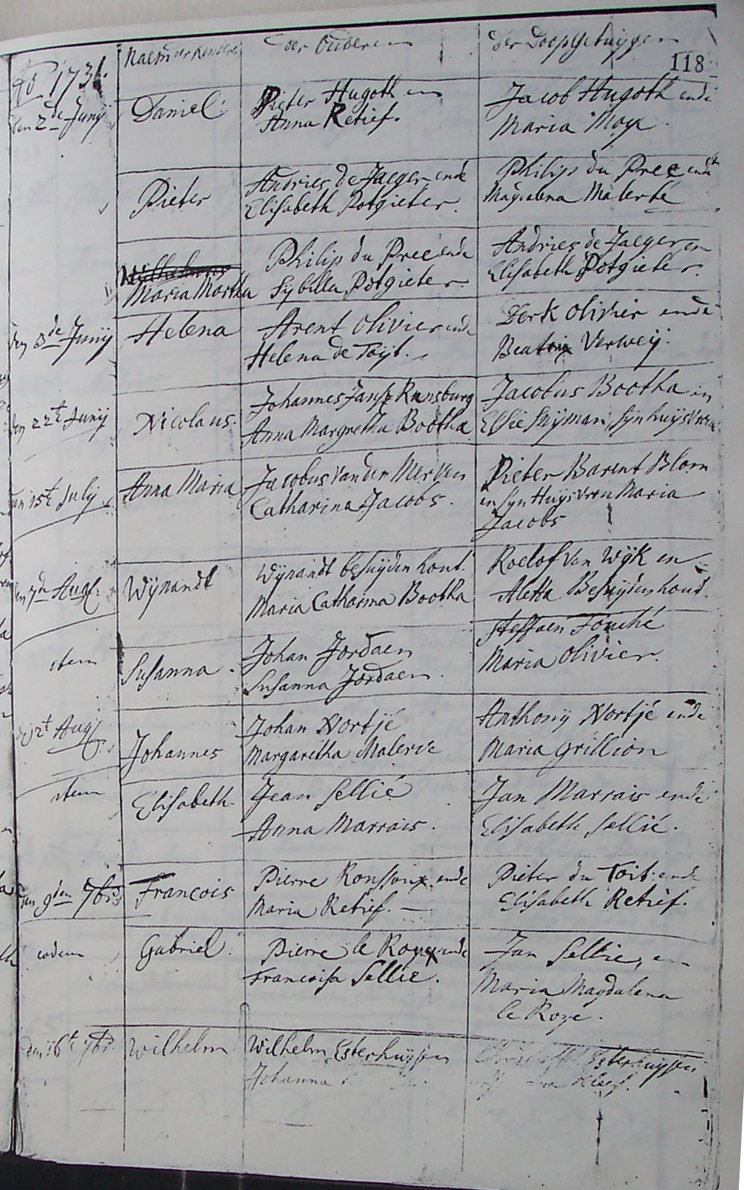 Naem der Kinderen der Ouderen der Doopgetuijgen
118
Ao 1731.
den 2de Junij Daniel Pieter Hugoth en Jacob Hugoth ende
Anna Retief. Maria Moy
Pieter Andries de Jaeger ende Philip du Pree ende
Elisabeth Potgieter. Magdalena Malerbe
Philip du Pree ende Andries de Jaeger en
Maria Martha Sybilla Potgieter Elisabeth Potgieter.
den 3de Junij Helena Arent Olivier ende Derk Olivier ende
Helena de Toijt. Beatrix Verweij.
den 22t Junij Nicolaus Johannes Jansz Rensburg Jacobus Bootha en
Anna Margretha Bootha Elsie Snijman, Sijn huijsvrou
den 15t Julij Anna Maria Jacobus van der Merven Pieter Barent Blom
Catharina Jacobs. en Syn Huysvrou Maria
Jacobs
den 7de Augt. Wijnandt Wijnandt besuijdenhout. Roelof van Wijk en
Maria Catharina Bootha Aletta Besuijdenhout.
item Susanna. Johan Jordaen Steffaen Fouché
Susanna Jordaen. Maria Olivier.
2t Aug Johannes Johan Nortjé Anthonij Nortjé ende
Margaretha Malerve Maria Grillion
item Elisabeth Jean Sellié Jan Marrais ende
Anna Marrais. Elisabeth Sellié.
den 9den 7br Francois Pierre Roussoux ende Pieter du Toit ende
Maria Retief. Elisabeth Retief.
eodem Gabriel Pierre le Roux ende Jan Sellie, en
Francoisa Sellie. Maria Magdalena
le Roye.
den 16t 7br. Wilhelm Wilhelm Esterhuijsen Esterhuijsen
Johanna